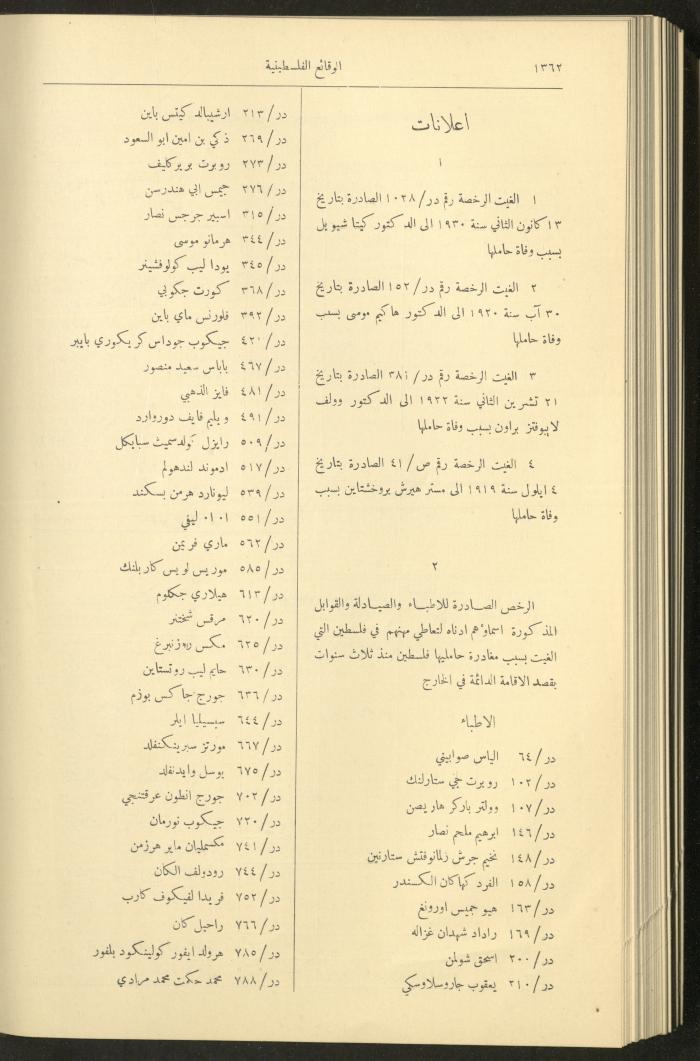 ١٣٦٢
الوقائع الفلسطينية
اعلانات
١
١ الغيت الرخصة رقم در/١٠٢٨ الصادرة بتاريخ
١٣ كانون الثاني سنة ١٩٣٠ الى الدكتور كيتا شيويل
بسبب وفاة حاملها
٢ الغيت الرخصة رقم در/١٥٢ الصادرة بتاريخ
٣٠ آب سنة ١٩٢٠ الى الدكتور هاكيم موسى بسبب
وفاة حاملها
٣ الغيت الرخصة رقم در/٣٨١ الصادرة بتاريخ
٢١ تشرين الثاني سنة ١٩٢٢ الى الدكتور وولف
لايبوفتز براون بسبب وفاة حاملها
٤ الغيت الرخصة رقم ص/٤١ الصادرة بتاريخ
٤ ايلول سنة ١٩١٩ الى مستر هيرش بروخشتاين بسبب
وفاة حاملها
٢
الرخص الصادرة للاطباء والصيادلة والقوابل
المذكورة اسماؤهم ادناه لتعاطي مهنهم في فلسطين التي
الغيت بسبب مغادرة حامليها فلسطين منذ ثلاث سنوات
بقصد الاقامة الدائمة في الخارج
الاطباء
در/٦٤ الياس صوابيني
در/١٠٢ روبرت جي ستارلنك
در/١٠٧ وولتر باركر هاريصن
در/١٤٦ ابرهيم ملحم نصار
در/١٤٨ نخيم جرش زلمانوفتش ستارنين
در/١٥٨ الفرد كهاكان الكسندر
در/١٦٣ هيو جميس اورونغ
در/١٦٩ راداد شهدان غزاله
در/٢٠٠ اسحق شولمن
در/٢١٠ يعقوب جاروسلاوسكي
در/٢١٣ ارشيبالد كيتس باين
در/٢٦٩ ذكي بن امين ابو السعود
در/٢٧٣ روبرت بريركليف
در/٢٧٦ جيمس ابي هندرسن
در/٣١٥ اسبير جرجس نصار
در/٣٤٤ هرمانو موسى
در/٣٤٥ يودا ليب كولوفشينر
در/٣٦٨ كورت جكوبي
در/٣٩٢ فلورنس ماي باين
در/٤٢٠ جيكوب جوداس كريكوري بايبر
در/٤٦٧ باباس سعيد منصور
در/٤٨١ فايز الذهبي
در/٤٩١ ويليم فايف دوروارد
در/٥٠٩ رايزل كولدسميث سبايكل
در/٥١٧ ادموند لندهولم
در/٥٣٩ ليونارد هرمن بسكند
در/٥٥١ ا٠ا٠ ليفي
در/٥٦٢ ماري فريمن
در/٥٨٥ موريس لويس كاربلنك
در/٦١٣ هيلاري جككوم
در/٦٢٠ مرقس شختنر
در/٦٢٥ مكس روزنبرغ
در/٦٣٠ حايم ليب روتستاين
در/٦٣٦ جورج جاكس بوزم
در/٦٤٤ سيسيليا ايلر
در/٦٦٧ مورتز سبرينكنفلد
در/٦٧٥ يوسل وايدنفلد
در/٧٠٢ جورج انطون عرقتنجي
در/٧٢٠ جيكوب نورمان
در/٧٤١ مكسمليان ماير هرزمن
در/٧٤٤ رودولف الكان
در/٧٥٢ فريدا لفيكوف كارب
در/٧٦٦ راحيل كان
در/٧٨٥ هرولد ايفور كولينكود بلفور
در/٧٨٨ محمد حكمت محمد مرادي